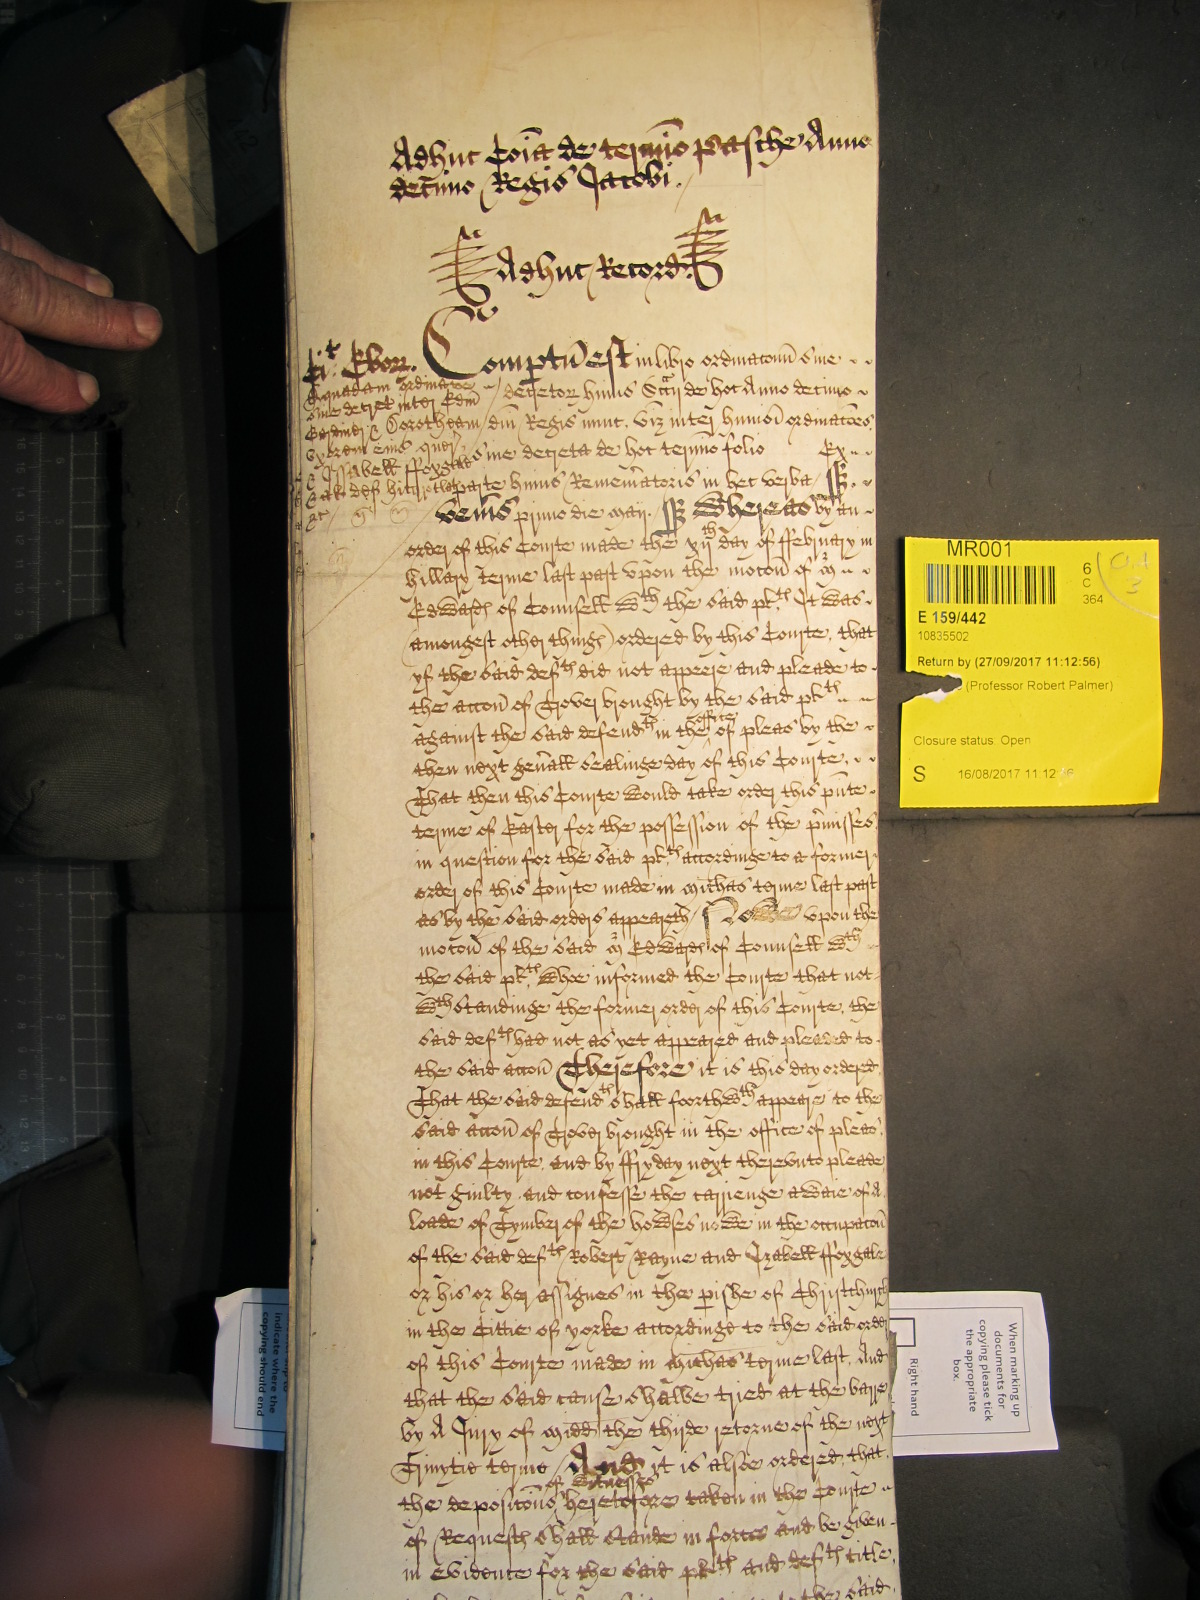 Adhuc Coia de termio pasche Anno
decimo Regis Jacobi.
Adhuc Record
Ebor.
Comptu est in libro ordinaconu sive
decretor huius Sccij de hoc Anno decimo
dni Regis nunc, viz inter humoi ordinacoes
sive decreta de hoc termio folio Ex
parte huius Remematoris in hec verba
Veneris primo die Maij. Whereas by an
order of this Courte made the xijth day of ffebruary in
hillary terme last past vpon the mocon of Mr
Edwards of Counsell wth the said plt. It was
amongest other things ordered by this Courte, that
yf the said defth did not appeere and pleade to
the accon of Trover brought by the said plth
against the said defendth in the office of pleas by the
then next gen'all sealinge day of this Courte.
That then this Courte would take order this pnte
terme of Easter for the possession of the p'misses
in question for the said plth accordinge to a former
order of this Courte made in Michas terme last past
as by the said orders appeareth / Nowe vpon the
mocon of the said Mr Edwards of Counsell wth
the said plth whoe informed the Courte that not
wthstandinge the former order of this Courte, the
said defth had not as yet appeared and pleaded to
the said accon Therefore it is this day ordered
That the said defendth shall foorthwth appeare to the
said accon of Trover brought in the office of pleas
in this Courte, and by ffryday next therevnto pleade
not guilty and confesse the carrienge awaie of A
loade of Tymber of the howses nowe in the occupacon
of the said defth Robert Rayne and Izabell ffoxgale
or his or her assignes in the pishe of Christchurch
in the Cittie of yorke accordinge to the said order
of this Courte made in Michas terme last, And
that the said cause shalbe tried at the barre
by A Jury of Midd the thirde retorne of the next
Trinytie terme / And it is alsoe ordered, that
of witnesses
the deposicons heretofore taken in the Courte
of Requests shall stande in force and be given
in Evidence for the said plth and defth title
to the said
MR001
6
C
364
E 159/442
10835502
Return by (27/09/2017 11:12:56)
(Professor Robert Palmer)
Closure status: Open
S 16/08/2017 11:12
When marking up
documents for
copying please tick
the appropriate
box.
Right hand
indicate where the
copying should end